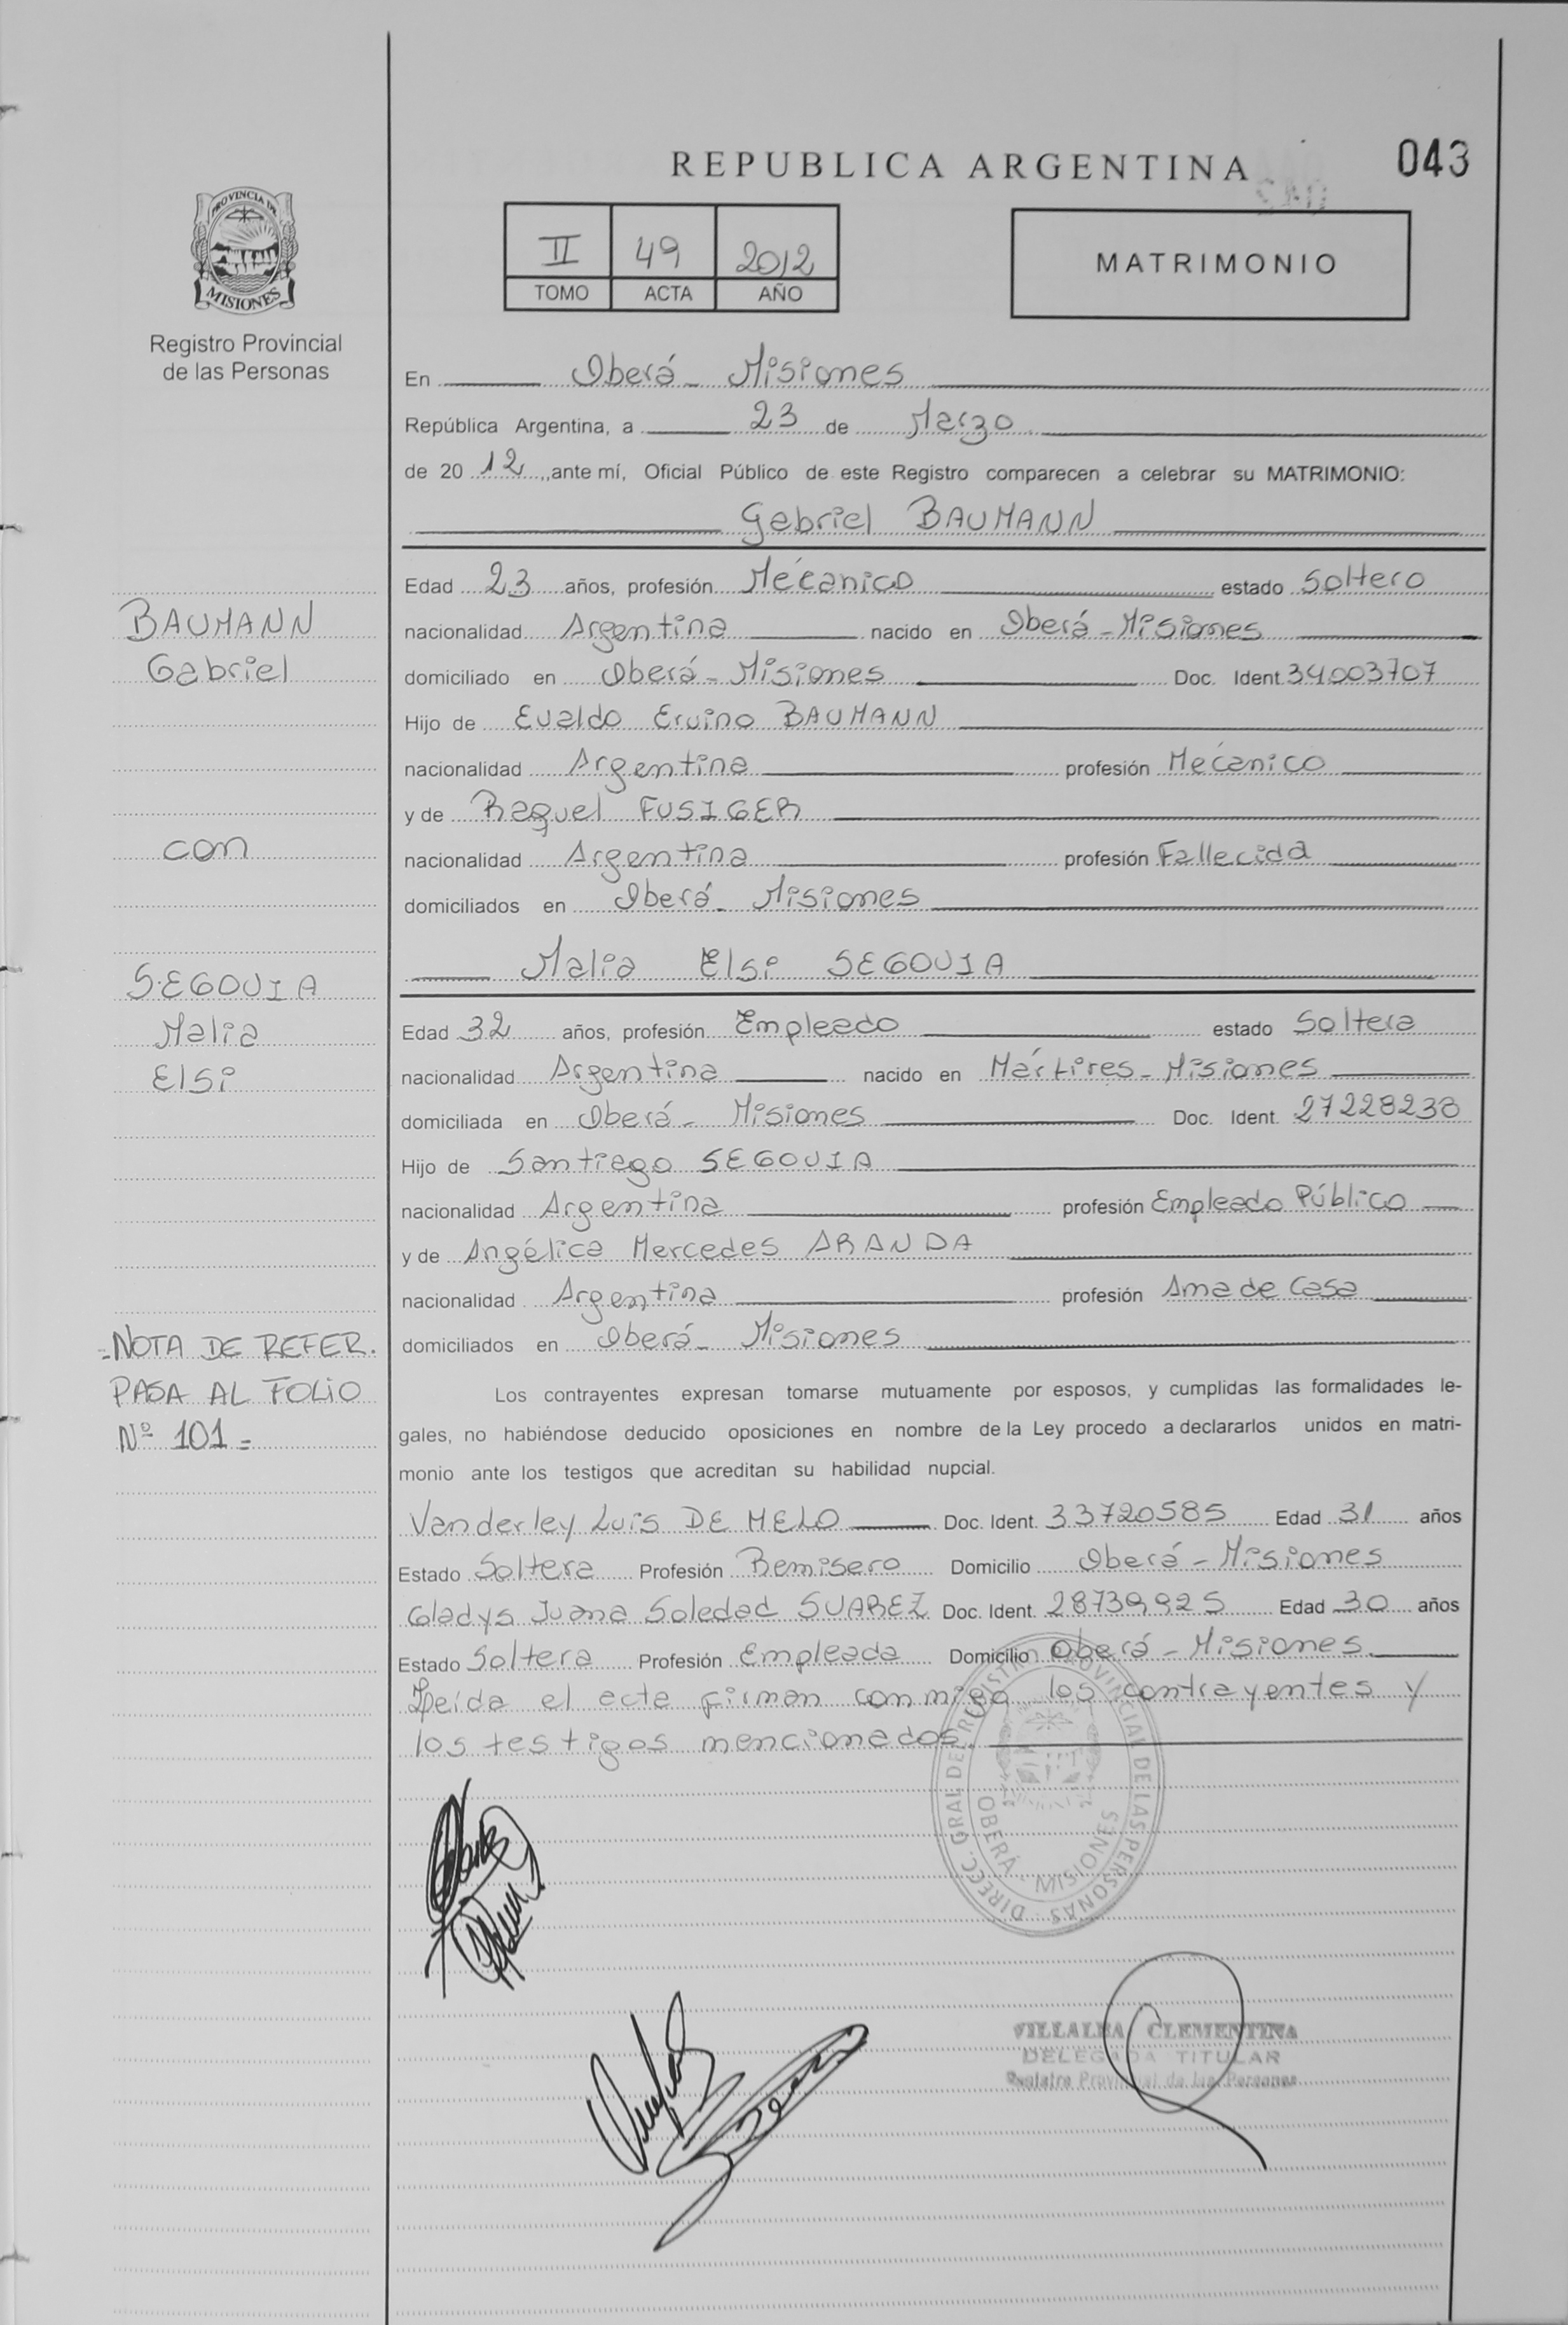 REPUBLICA ARGENTINA
043
PROVINCIA DE
MISIONES
Registro Provincial
de las Personas
II 49 2012
TOMO ACTA AÑO
MATRIMONIO
En Oberá - Misiones
República Argentina, a 23 de Marzo
de 20 12, ante mí, Oficial Público de este Registro comparecen a celebrar su MATRIMONIO:
Gabriel BAUMANN
Edad 23 años, profesión Mecánico estado Soltero
nacionalidad Argentina nacido en Oberá - Misiones
domiciliado en Oberá - Misiones Doc. Ident. 34003707
Hijo de Evaldo Ervino BAUMANN
nacionalidad Argentina profesión Mecánico
y de Raquel FUSIGER
nacionalidad Argentina profesión Fallecida
domiciliados en Oberá - Misiones
Malia Elsi SEGOVIA
Edad 32 años, profesión Empleado estado Soltera
nacionalidad Argentina nacido en Mártires - Misiones
domiciliada en Oberá - Misiones Doc. Ident. 27228238
Hijo de Santiago SEGOVIA
nacionalidad Argentina profesión Empleado Público
y de Angélica Mercedes ARANDA
nacionalidad Argentina profesión Ama de Casa
domiciliados en Oberá - Misiones
Los contrayentes expresan tomarse mutuamente por esposos, y cumplidas las formalidades le-
gales, no habiéndose deducido oposiciones en nombre de la Ley procedo a declararlos unidos en matri-
monio ante los testigos que acreditan su habilidad nupcial.
Vanderley Luis DE MELO Doc. Ident. 33720585 Edad 31 años
Estado Soltera Profesión Remisero Domicilio Oberá - Misiones
Gladys Juana Soledad SUAREZ Doc. Ident. 28739925 Edad 30 años
Estado Soltera Profesión Empleada Domicilio Oberá - Misiones
Leída el acta firman conmigo los contrayentes y
los testigos mencionados.
BAUMANN
Gabriel
con
SEGOVIA
Malia
Elsi
=NOTA DE REFER.
PASA AL FOLIO
Nº 101=
DIRECC. GRAL DEL REGISTRO PROVINCIAL DE LAS PERSONAS
OBERÁ - MISIONES
VILLALBA CLEMENTINA
DELEGADA TITULAR
Registro Provincial de las Personas